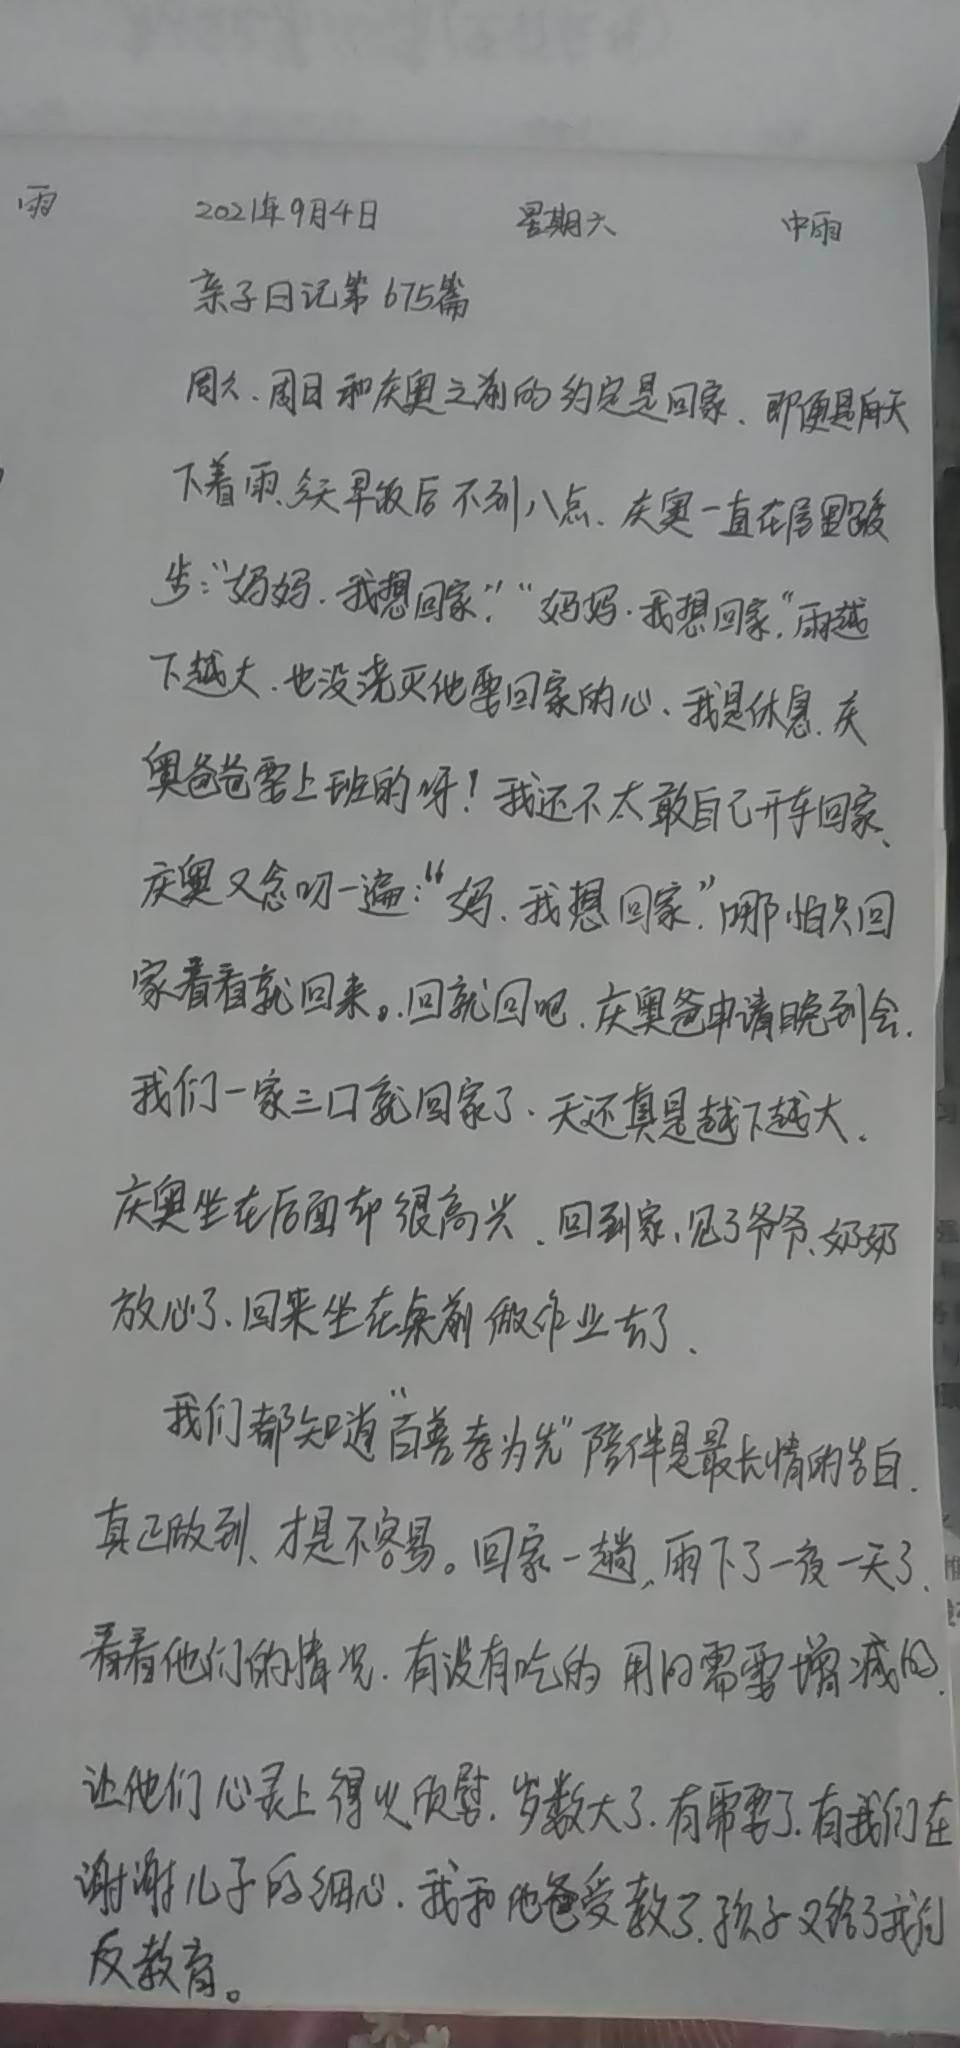 雨
2021年9月4日 星期六 中雨
亲子日记第675篇
周六、周日和庆奥之前的约定是回家、即便是雨天
下着雨、今天早饭后不到八点、庆奥一直在屋里踱
步：“妈妈、我想回家”，“妈妈、我想回家，”雨越
下越大、也没浇灭他要回家的心、我是休息、庆
奥爸爸要上班的呀！我还不太敢自己开车回家、
庆奥又念叨一遍：“妈、我想回家”，哪怕只回
家看看就回来。回就回吧、庆奥爸申请晚到会、
我们一家三口就回家了、天还真是越下越大、
庆奥坐在后面却很高兴、回到家、见了爷爷、奶奶
放心了、回来坐在桌前做作业去了、
我们都知道“百善孝为先”陪伴是最长情的告白、
真正做到、才是不容易。回家一趟、雨下了一夜一天了、
看看他们的情况、有没有吃的 用的需要增减的、
让他们心灵上得以欣慰、岁数大了、有需要了、有我们在
谢谢儿子的细心、我和他爸受教了、孩子又给了我们
反教育。